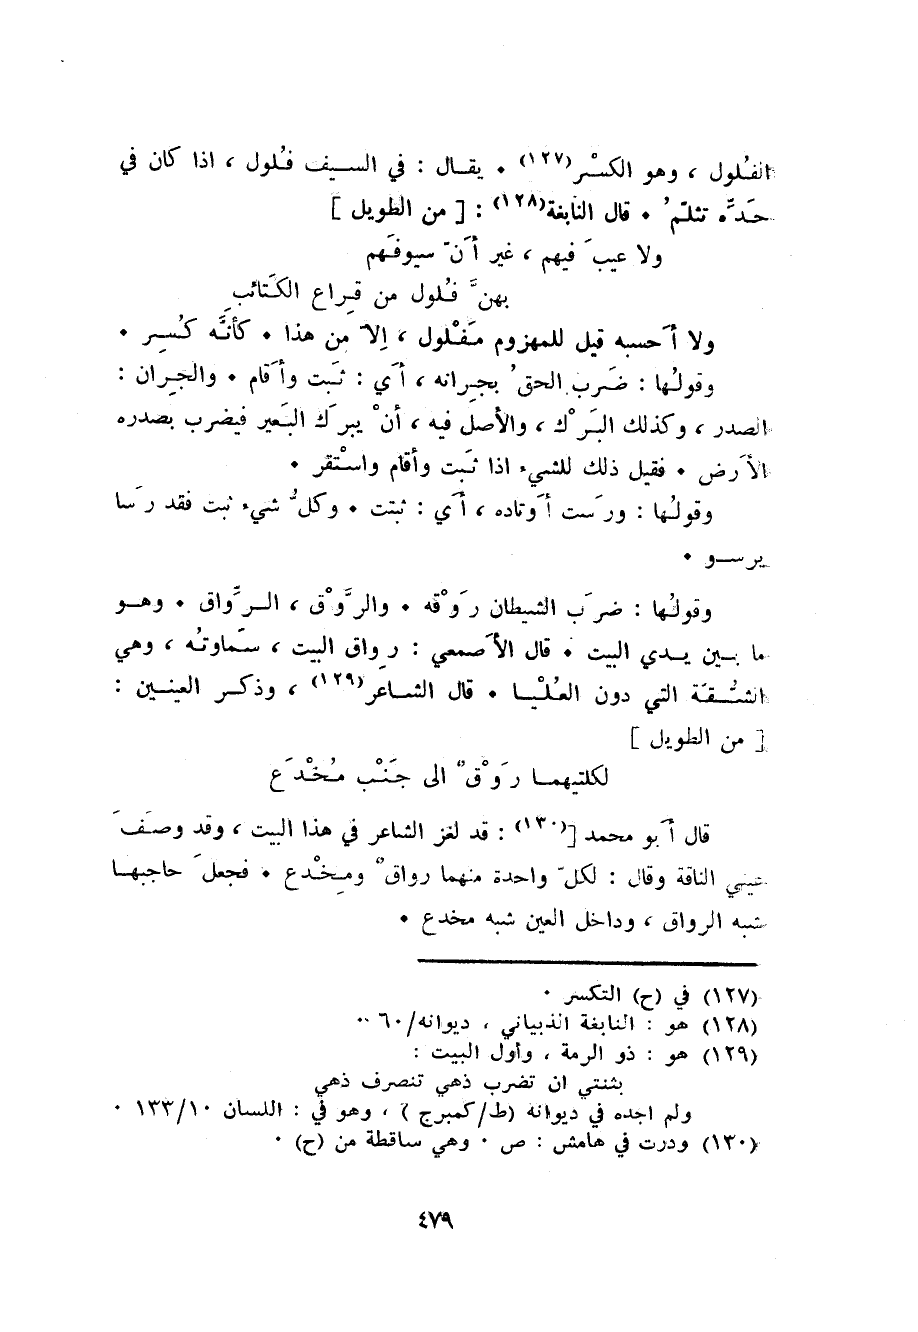 الفُلول ، وهو الكسْر(١٢٧) ٠ يقال : في السيف فُلول ، اذا كان في
حَدِّه تثلّمُ ٠ قال النابغة(١٢٨) : [ من الطويل ]
ولا عيبَ فيهم ، غير أَنّ سيوفَهم
بهنَّ فُلول من قِراع الكَتائبِ
ولا أَحسبه قيل للمهزوم مَفْلول ، إِلاّ من هذا ٠ كأنَّه كُسِر ٠
وقولُها : ضَرب الحقُ بجِرانه ، أَي : ثَبَت وأَقام ٠ والجِران :
الصدر ، وكذلك البَرْك ، والأصل فيه ، أنْ يبرَك البَعير فيضرب بصدره
الأَرض ٠ فقيل ذلك للشيء اذا ثَبت وأقام واسْتقر ٠
وقولُها : ورَست أَوتاده ، أَي : ثبتت ٠ وكلُّ شيء ثبت فقد رَسا
يرسو ٠
وقولُها : ضرَب الشيطان رَوْقه ٠ والرَّوْق ، الرِّواق ٠ وهو
ما بين يدي البيت ٠ قال الأَصمعي : رِواق البيت ، سَماوتُه ، وهي
الشُّقة التي دون العُلْيا ٠ قال الشاعر(١٢٩) ، وذكر العينين :
[ من الطويل ]
لكلتيهما رَوْقٌ الى جَنْب مُخْدَع
قال أَبو محمد [(١٣٠) : قد لغز الشاعر في هذا البيت ، وقد وصفَ
عيني الناقة وقال : لكلّ واحدة منهما رواقٌ ومِخْدع ٠ فجعلَ حاجبها
شبه الرواق ، وداخل العين شبه مخدع ٠
(١٢٧) في (ح) التكسر ٠
(١٢٨) هو : النابغة الذبياني ، ديوانه/٦٠ ٠٠
(١٢٩) هو : ذو الرمة ، وأول البيت :
بثنتي ان تضرب ذهي تنصرف ذهي
ولم اجده في ديوانه (ط/كمبرج ) ، وهو في : اللسان ١٣٣/١٠ ٠
(١٣٠) ودرت في هامش : ص ٠ وهي ساقطة من (ح) ٠
٤٧٩